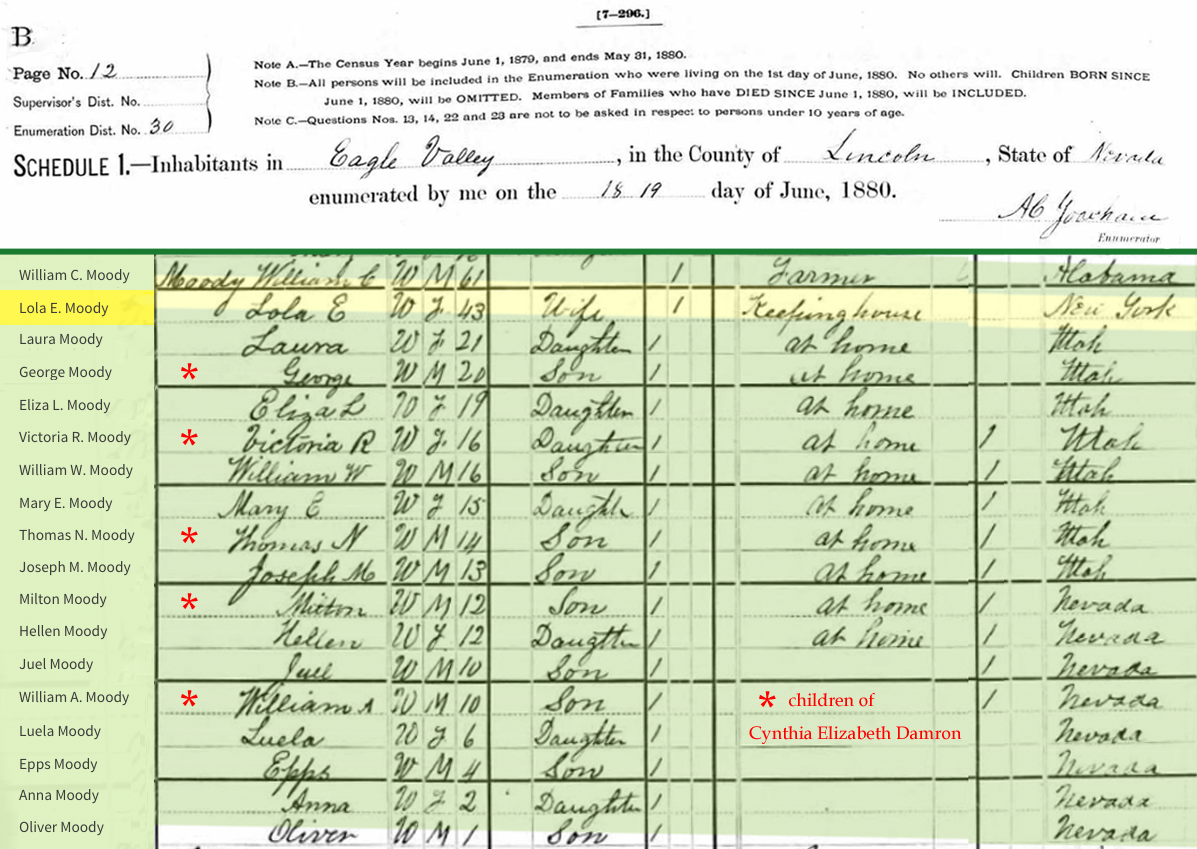 [7–296.]
B
Page No. 12
Supervisor's Dist. No.
Enumeration Dist. No. 30
Note A.—The Census Year begins June 1, 1879, and ends May 31, 1880.
Note B.—All persons will be included in the Enumeration who were living on the 1st day of June, 1880. No others will. Children BORN SINCE
June 1, 1880, will be OMITTED. Members of Families who have DIED SINCE June 1, 1880, will be INCLUDED.
Note C.—Questions Nos. 13, 14, 22 and 23 are not to be asked in respect to persons under 10 years of age.
SCHEDULE 1.—Inhabitants in Eagle Valley, in the County of Lincoln, State of Nevada
enumerated by me on the 18 19 day of June, 1880.
Enumerator
William C. Moody Moody William C W M 61 1 Farmer Alabama
Lola E. Moody Lola E W F 43 Wife 1 Keeping house New York
Laura Moody Laura W F 21 Daughter 1 at home Utah
George Moody * George W M 20 Son 1 at home Utah
Eliza L. Moody Eliza L W F 19 Daughter 1 at home Utah
Victoria R. Moody * Victoria R W F 16 Daughter 1 at home 1 Utah
William W. Moody William W W M 16 Son 1 at home 1 Utah
Mary E. Moody Mary E W F 15 Daughter 1 at home 1 Utah
Thomas N. Moody * Thomas N W M 14 Son 1 at home 1 Utah
Joseph M. Moody Joseph M W M 13 Son 1 at home 1 Utah
Milton Moody * Milton W M 12 Son 1 at home 1 Nevada
Hellen Moody Hellen W F 12 Daughter 1 at home 1 Nevada
Juel Moody Juel W M 10 Son 1 1 Nevada
William A. Moody * William A W M 10 Son 1 * children of 1 Nevada
Luela Moody Luela W F 6 Daughter 1 Cynthia Elizabeth Damron Nevada
Epps Moody Epps W M 4 Son 1 Nevada
Anna Moody Anna W F 2 Daughter 1 Nevada
Oliver Moody Oliver W M 1 Son 1 Nevada